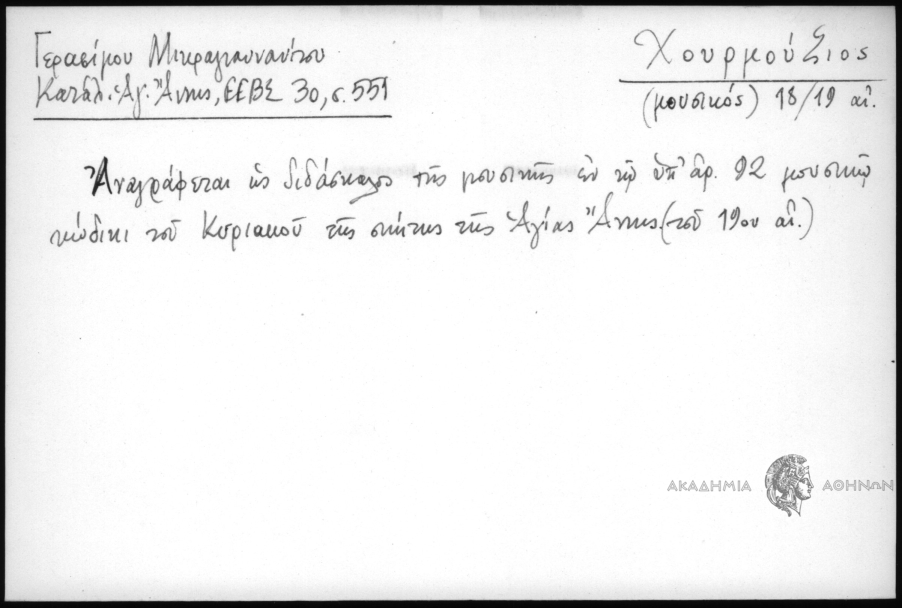 Γερασίμου Μικραγιαννανίτου
Κατάλ. Ἁγ. Ἄννης, ΕΕΒΣ 30, σ. 551
Χουρμούζιος
(μουσικός) 18/19 αἰ.
Ἀναγράφεται ὡς διδάσκαλος τῆς μουσικῆς ἐν τῷ ὑπ' ἀρ. 92 μουσικῷ
κώδικι τοῦ Κυριακοῦ τῆς σκήτης τῆς Ἁγίας Ἄννης. (τοῦ 19ου αἰ.)
ΑΚΑΔΗΜΙΑ ΑΘΗΝΩΝ